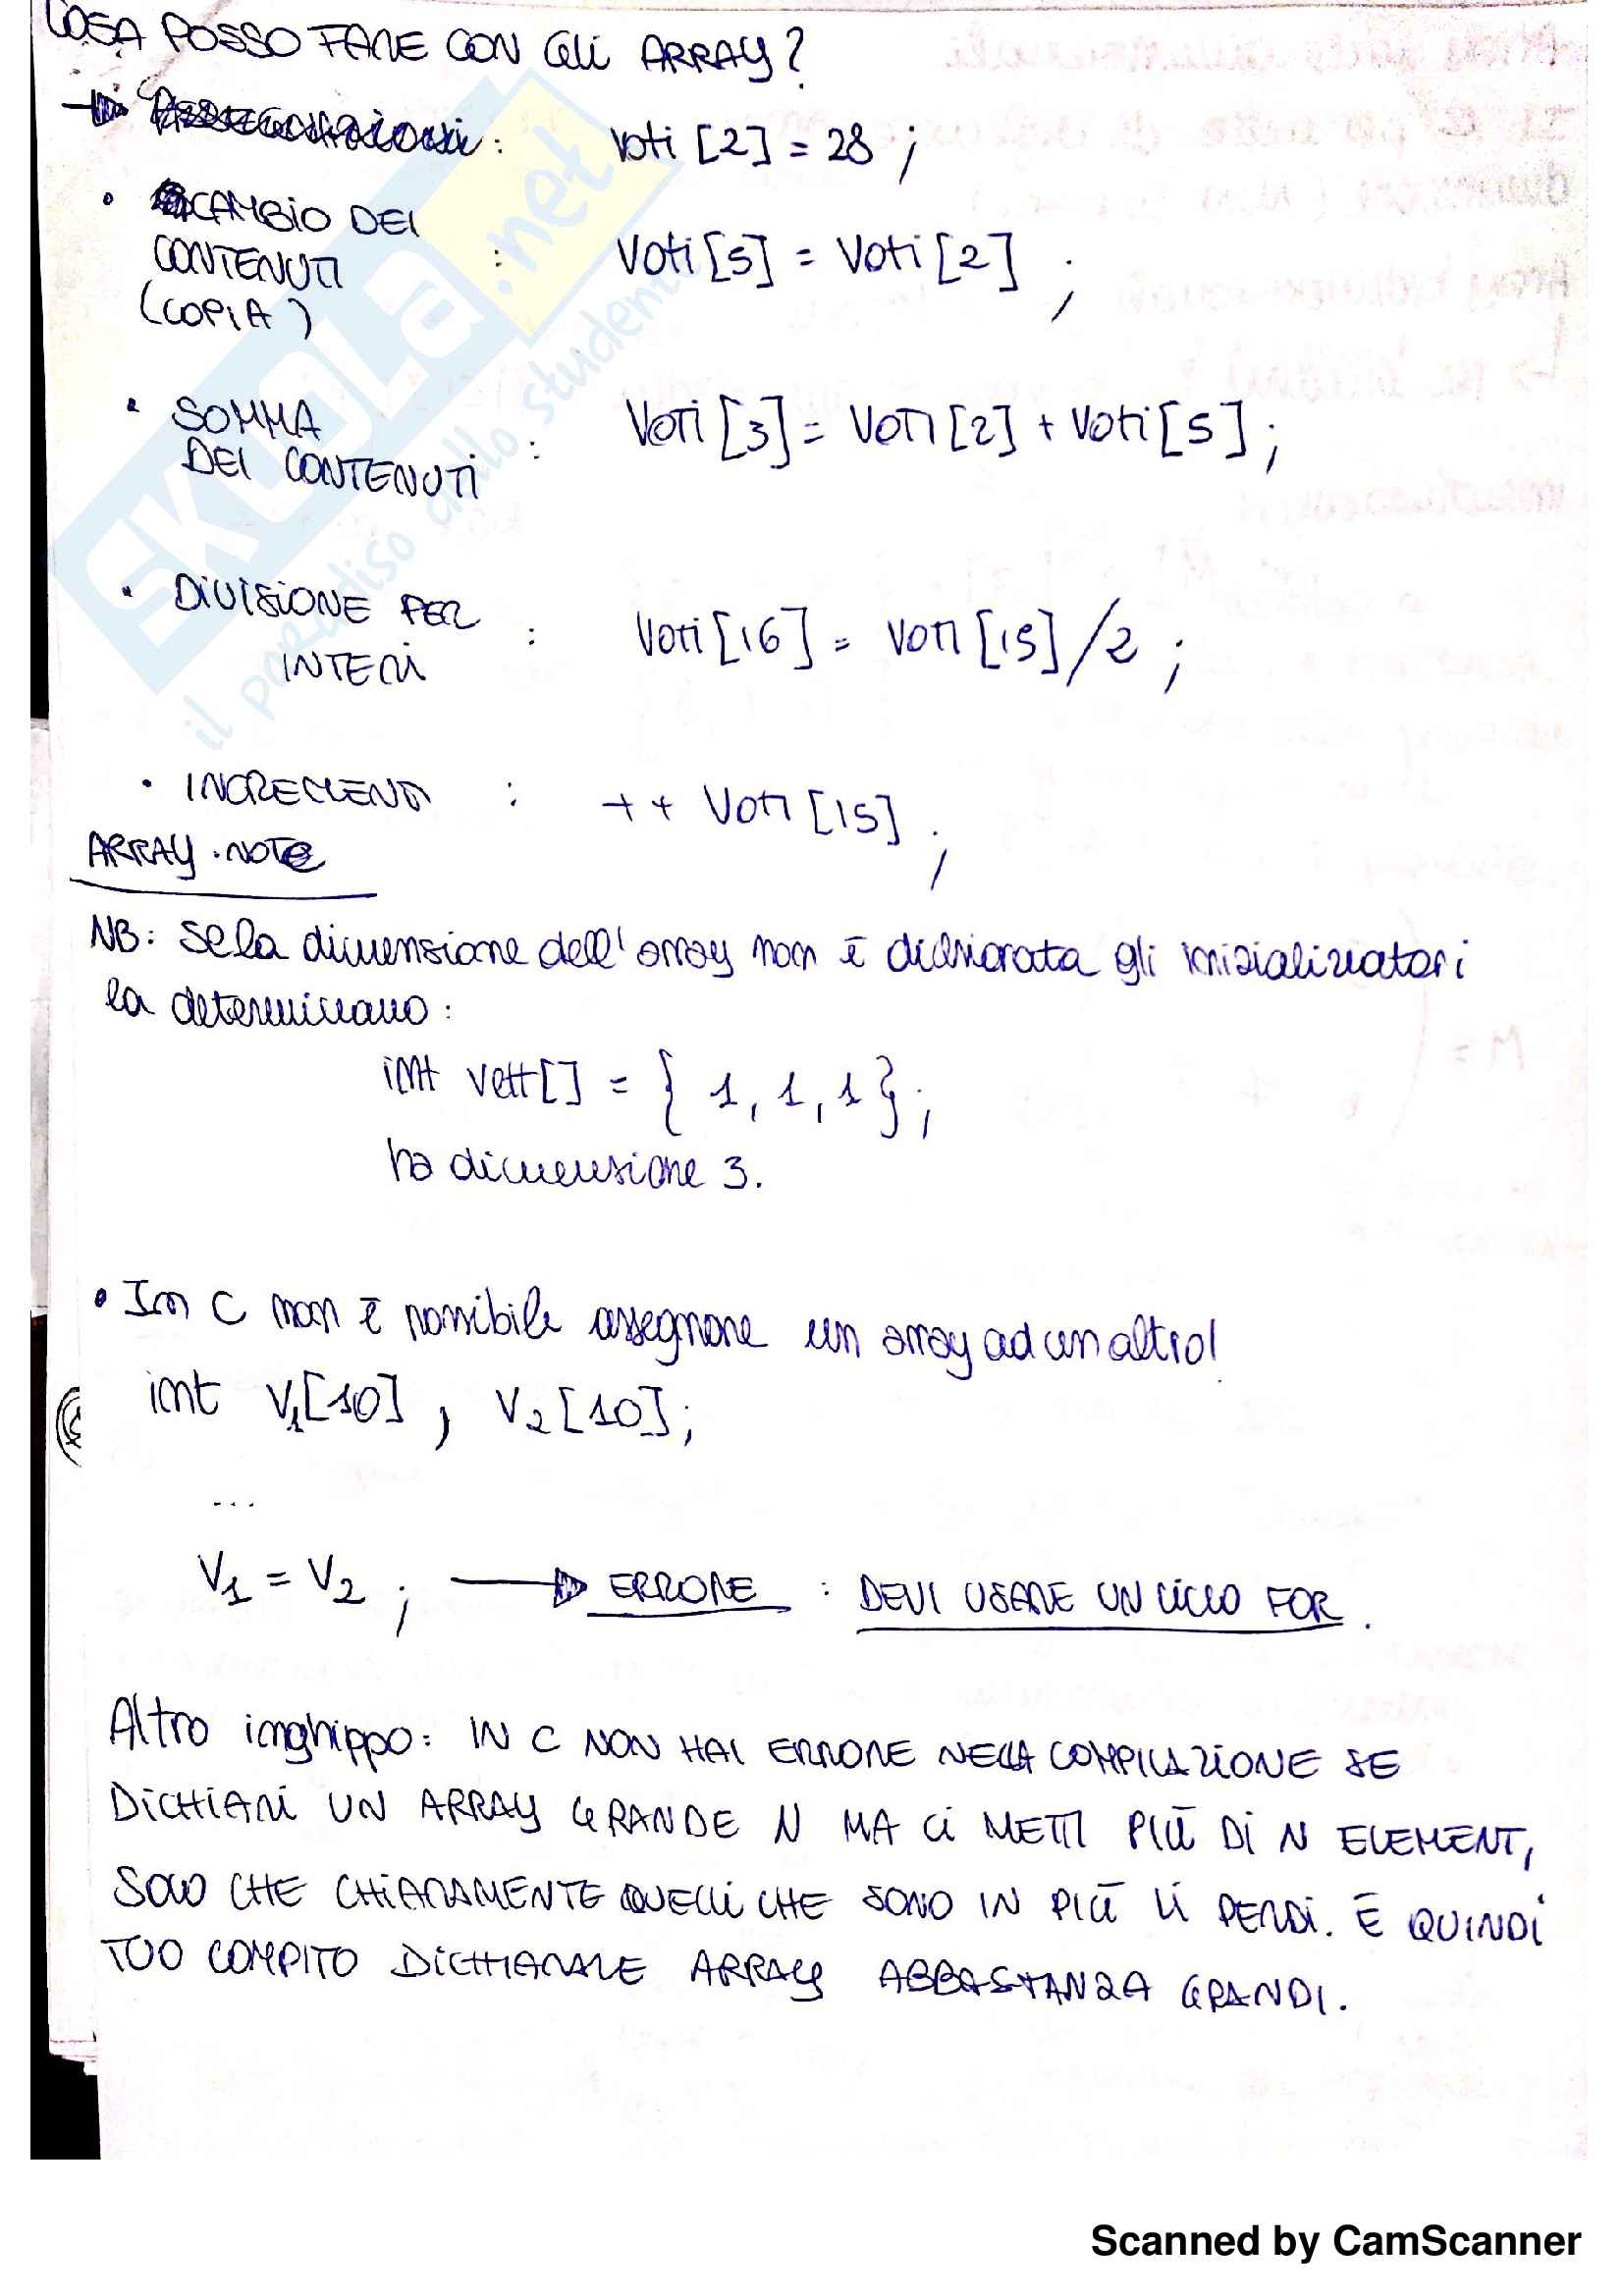 COSA POSSO FARE CON GLI ARRAY?
→ ASSEGNAZIONI : voti [2] = 28 ;
• SCAMBIO DEI
CONTENUTI : Voti [5] = Voti [2] ;
(COPIA)
• SOMMA
DEI CONTENUTI : Voti [3] = Voti [2] + Voti [5] ;
• DIVISIONE PER
INTERI : Voti [16] = Voti [15] /2 ;
• INCREMENTI : ++ Voti [15] ;
ARRAY . NOTE
NB: Se la dimensione dell' array non è dichiarata gli inizializzatori
la determinano :
int vett[] = { 1, 1, 1 } ;
ha dimensione 3.
• In C non è possibile assegnare un array ad un altro!
int V1[10] , V2[10];
...
V1 = V2 ; → ERRORE : DEVI USARE UN CICLO FOR .
Altro inghippo: IN C NON HAI ERRORE NELLA COMPILAZIONE SE
DICHIARI UN ARRAY GRANDE N MA CI METTI PIÙ DI N ELEMENTI,
SOLO CHE CHIARAMENTE QUELLI CHE SONO IN PIÙ LI PERDI. È QUINDI
TUO COMPITO DICHIARARE ARRAY ABBASTANZA GRANDI.
SKUOLA.net
il paradiso dello studente
Scanned by CamScanner